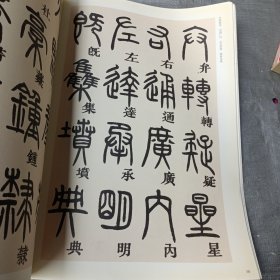 弁轉疑星
右通廣內
左達承明
既集墳典
稾鍾隸